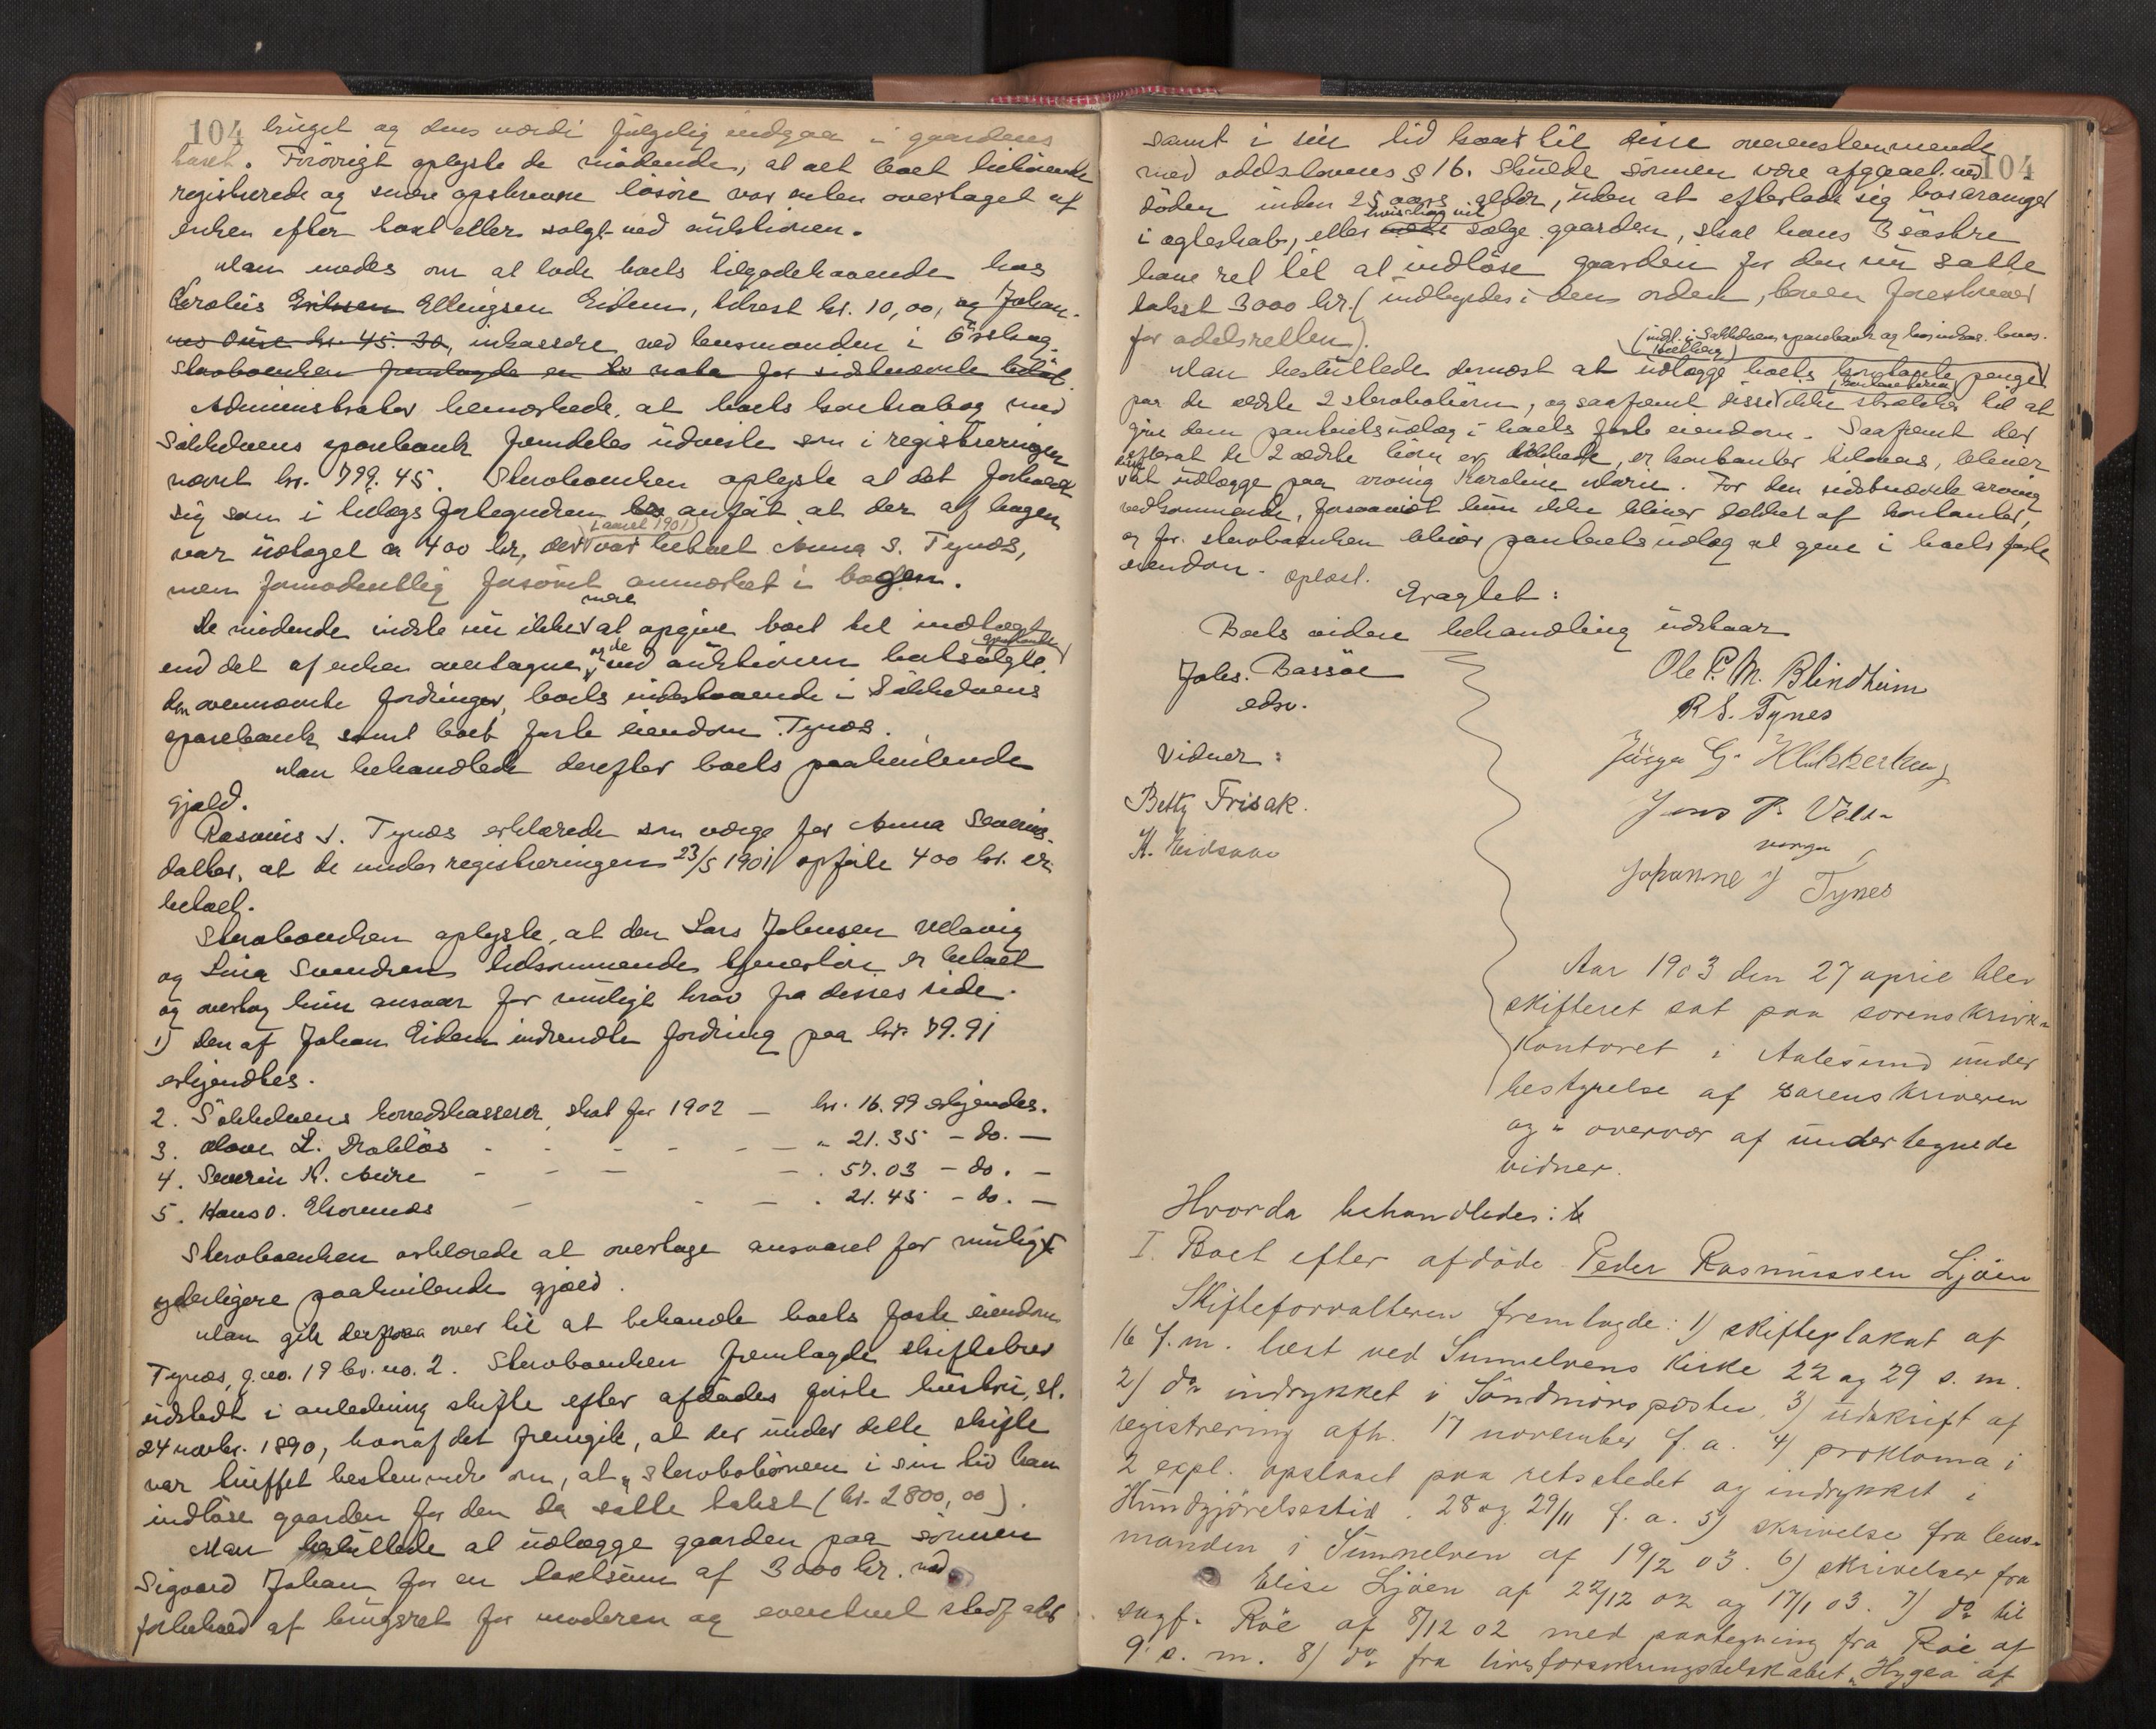 104 bruget og dens værdi følgelig indgaar i gaardens
takst. Forøvrigt oplyste de mødende, at alt boet tilhørende
registrerede og senere opskrevne løsøre var enten overtaget af
enken efter takst eller solgt ved auktionen.
Man enedes om at lade boets tilgodehavende hos
Karolus Eriksen Ellingsen Eidem, udrest kr. 10,00, og Johan-
nes Ouse kr. 45.30, inkassere ved lensmanden i Ørskog.
Skraboenken fremlagde en nota for sidstnævnte beløb.
Administrator bemærkede, at boets kontrabog med
Søkkelvens sparebank fremdeles udviste som i registreringen
nævnt kr. 799.45. Skraboenken oplyste at det forholdt
sig som i bilags forlegnden anført at der af bogen
var udtaget 400 kr, der (april 1901) var betalt Anna S. Tynes,
men formodentlig forsømt anmærket i bogen.
De mødende vidste nu ikke mere at opgive boet til indtægt
end det af enken overtagne, og de ved auktionen bortsolgte gjenstande
den ovennævnte fordringer, boets indestaaende i Søkkelvens
sparebank samt boets faste eiendom Tynes.
Man behandlede derefter boets paahvilende
gjæld.
Rasmus S. Tynes erklærede som værge for Anna Severins-
datter, at de under registreringen 23/5 1901 opførte 400 kr. er
betalt.
Skraboenken oplyste, at den Lars Johnsen Velavig
og Lina Svendsen tilkommende tjenerløn er betalt
og overtog hun ansvar for muligt krav fra disses side.
1) Den af Johan Eidem indsendte fordring paa kr. 79.91
erkjendtes.
2. Søkkelvens herredskasserer, skat for 1902 — kr. 16.99 erkjendes.
3. L. Drabløs - - - - - " 21.35 - do. —
4. Severin K. Aure - - - - . 57.03 - do. -
5. Hans O. - - - . 21.45 - do. —
Skraboenken erklærede at overtage ansvaret for muligt
yderligere paahvilende gjæld.
Man gik derpaa over til at behandle boets faste eiendom
Tynes, g.no. 19 br. no. 2. Skraboenken fremlagde skiftebrev
udstedt i anledning skifte efter afdødes første hustru, sl.
24 novbr. 1890, hvoraf det fremgik, at der under dette skifte
var truffet bestemmelse om, at "skrabobørnene i sin tid kan
indløse gaarden for den da satte takst (kr. 2800,00).
Man besluttede at udlægge gaarden paa sønnen
Sigvard Johan for en taxtsum af 3000 kr. med
forbehold af brugsret for moderen og eventuel stedfader
104
samt i sin tid kaar til disse overensstemmende
med odelslovens § 16. Skulde sønnen være afgaaet ved
døden inden 25 aars alder, uden at efterlade sig livsarvinger
i egteskab, eller hvis han vil sælge gaarden, skal hans 3 søstre
have ret til at indløse gaarden for den nu satte
takst 3000 kr. (indbyrdes i den orden, loven foreskriver
for odelsretten).
(indbef. i Søkkelvens sparebank og hos inkas. lens.
Hellberg)
Man besluttede dernæst at udlægge boets kontante penge
paa de ældste 2 skrabobørn, og saafremt disse (kontanterne) ikke strækker til at
give dem panteretsudlæg i boets faste eiendom. Saafremt der
efterat de 2 ældste børn er dækkede, er kontanter tilovers, bliver
disse at udlægge paa arving Karoline Marie. For den sidstnævnte arving
vedkommende, forsaavidt hun ikke bliver dækket af kontanter,
og for skraboenken bliver panteretsudlæg at give i boets faste
eiendom. Oplæst.
Eragtet:
Boets videre behandling udstaar
Johs. Bassøe
edsv.
Ole P. M. Blindheim
R S. Tynes
Jørgen G. Klokkerhaug
Jens P. Velle
verge
Johanne J Tynes
Vidner:
Betty Frisak.
K. Eidsvaa
Aar 1903 den 27 april blev
skifteret sat paa sorenskriver-
kontoret i Aalesund under
bestyrelse af sorenskriveren
og i overvær af undertegnede
vidner.
Hvorda behandledes:
I. Boet efter afdøde Peder Rasmussen Ljøen
Skifteforvalteren fremlagde: 1) skifteplakat af
16 f.m. læst ved Sunnelvens kirke 22 og 29 s.m.
2) do indrykket i Søndmørsposten, 3) udskrift af
registrering afh. 17 november f.a. 4) proklama i
2 expl. opslaaet paa retsstedet og indrykket i
Kundgjørelsestid. 28 og 29/11 f.a. 5) skrivelse fra lens-
manden i Sunnelven af 19/2 03. 6) skrivelser fra
Elise Ljøen af 22/12 02 og 17/1 03. 7) do til
sagf. Röe af 8/12 02 med paategning fra Röe af
9 s.m. 8) do fra livsforsikringsselskabet "Hygea" af